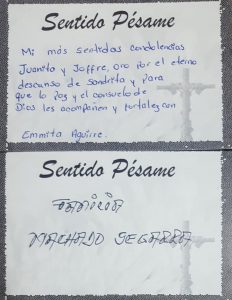 Sentido Pésame
Mi más sentidas condolencias
Juanita y Joffre, oro por el eterno
descanso de Sandrita y para
que la Paz y el consuelo de
Dios les acompañen y fortalezcan
Emmita Aguirre.
Sentido Pésame
FAMILIA
MACHADO SEGARRA